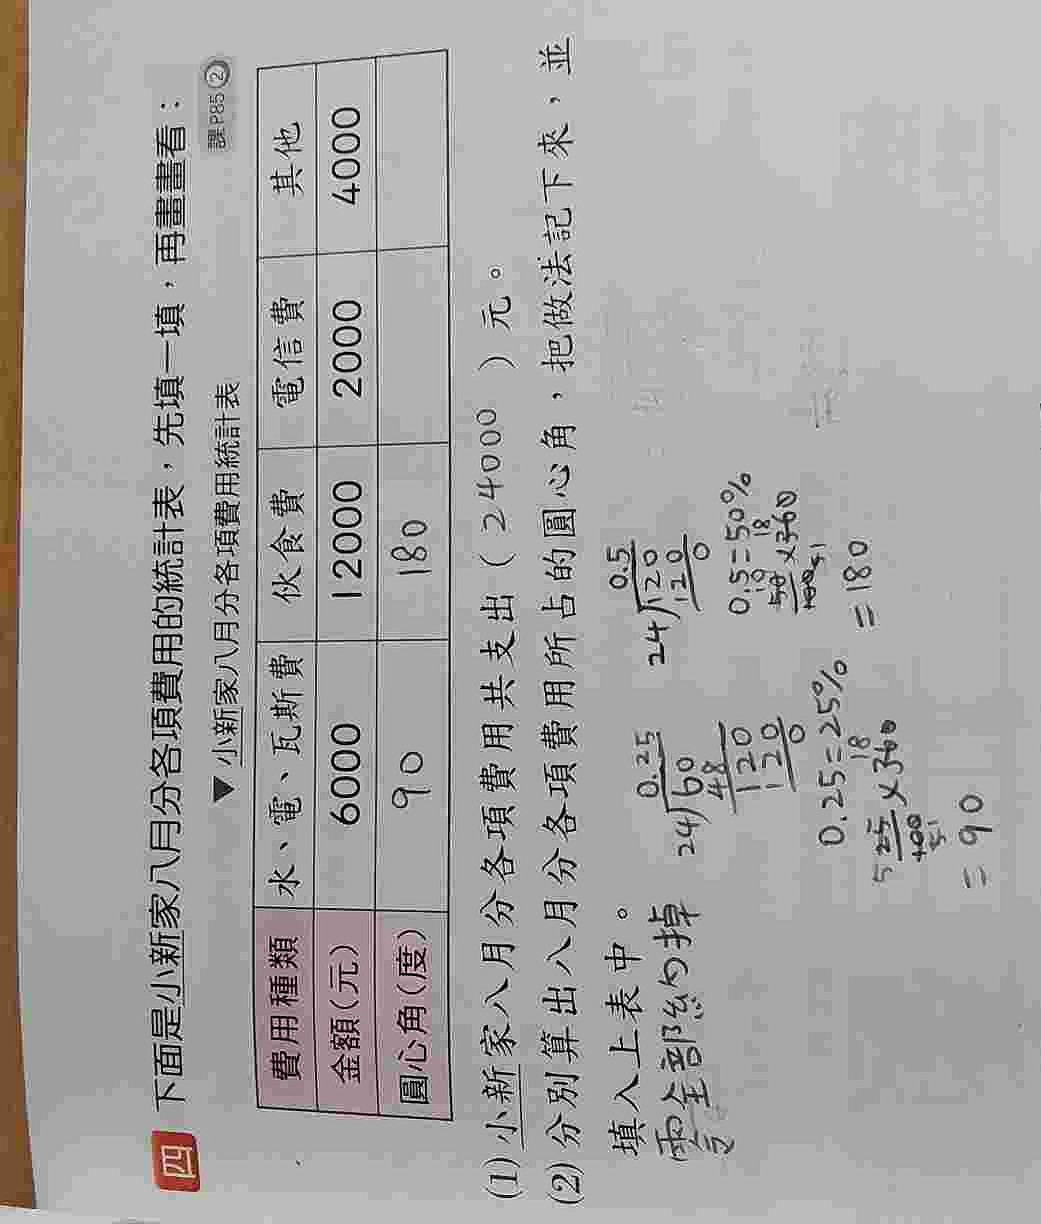 四 下面是小新家八月分各項費用的統計表,先填一填,再畫畫看:
課P85②
▼小新家八月分各項費用統計表
費用種類 水、電、瓦斯費 伙食費 電信費 其他
金額(元) 6000 12000 2000 4000
圓心角(度) 90 180
(1)小新家八月分各項費用共支出(24000)元。
(2)分別算出八月分各項費用所占的圓心角,把做法記下來,並
填入上表中。
零全部約掉
0.25
24)60
48
120
120
0
0.25=25%
5 25/100 × 360 18
5 1
=90
0.5
24)120
120
0
0.5=50%
10 50/100 × 360 18
5 1
=180